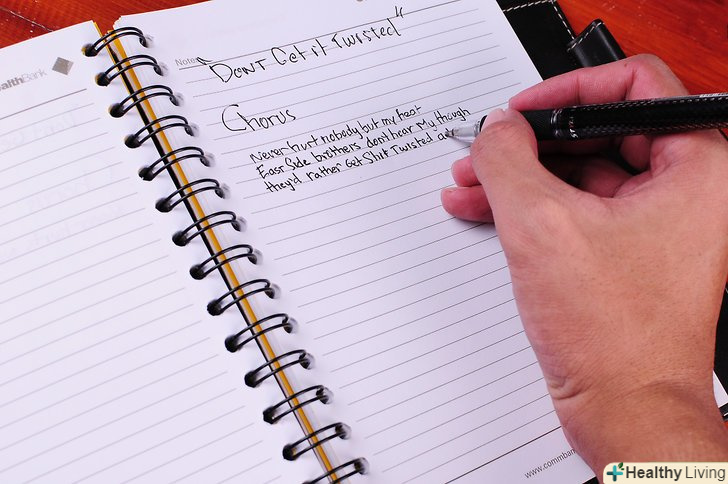 ealthBank
Notes
"Dont Get it Twisted"
Chorus
Never hurt nobody but my
East Side brothers dont hear My though
they'd rather Get Shit Twisted
www.commban
Healthy Living